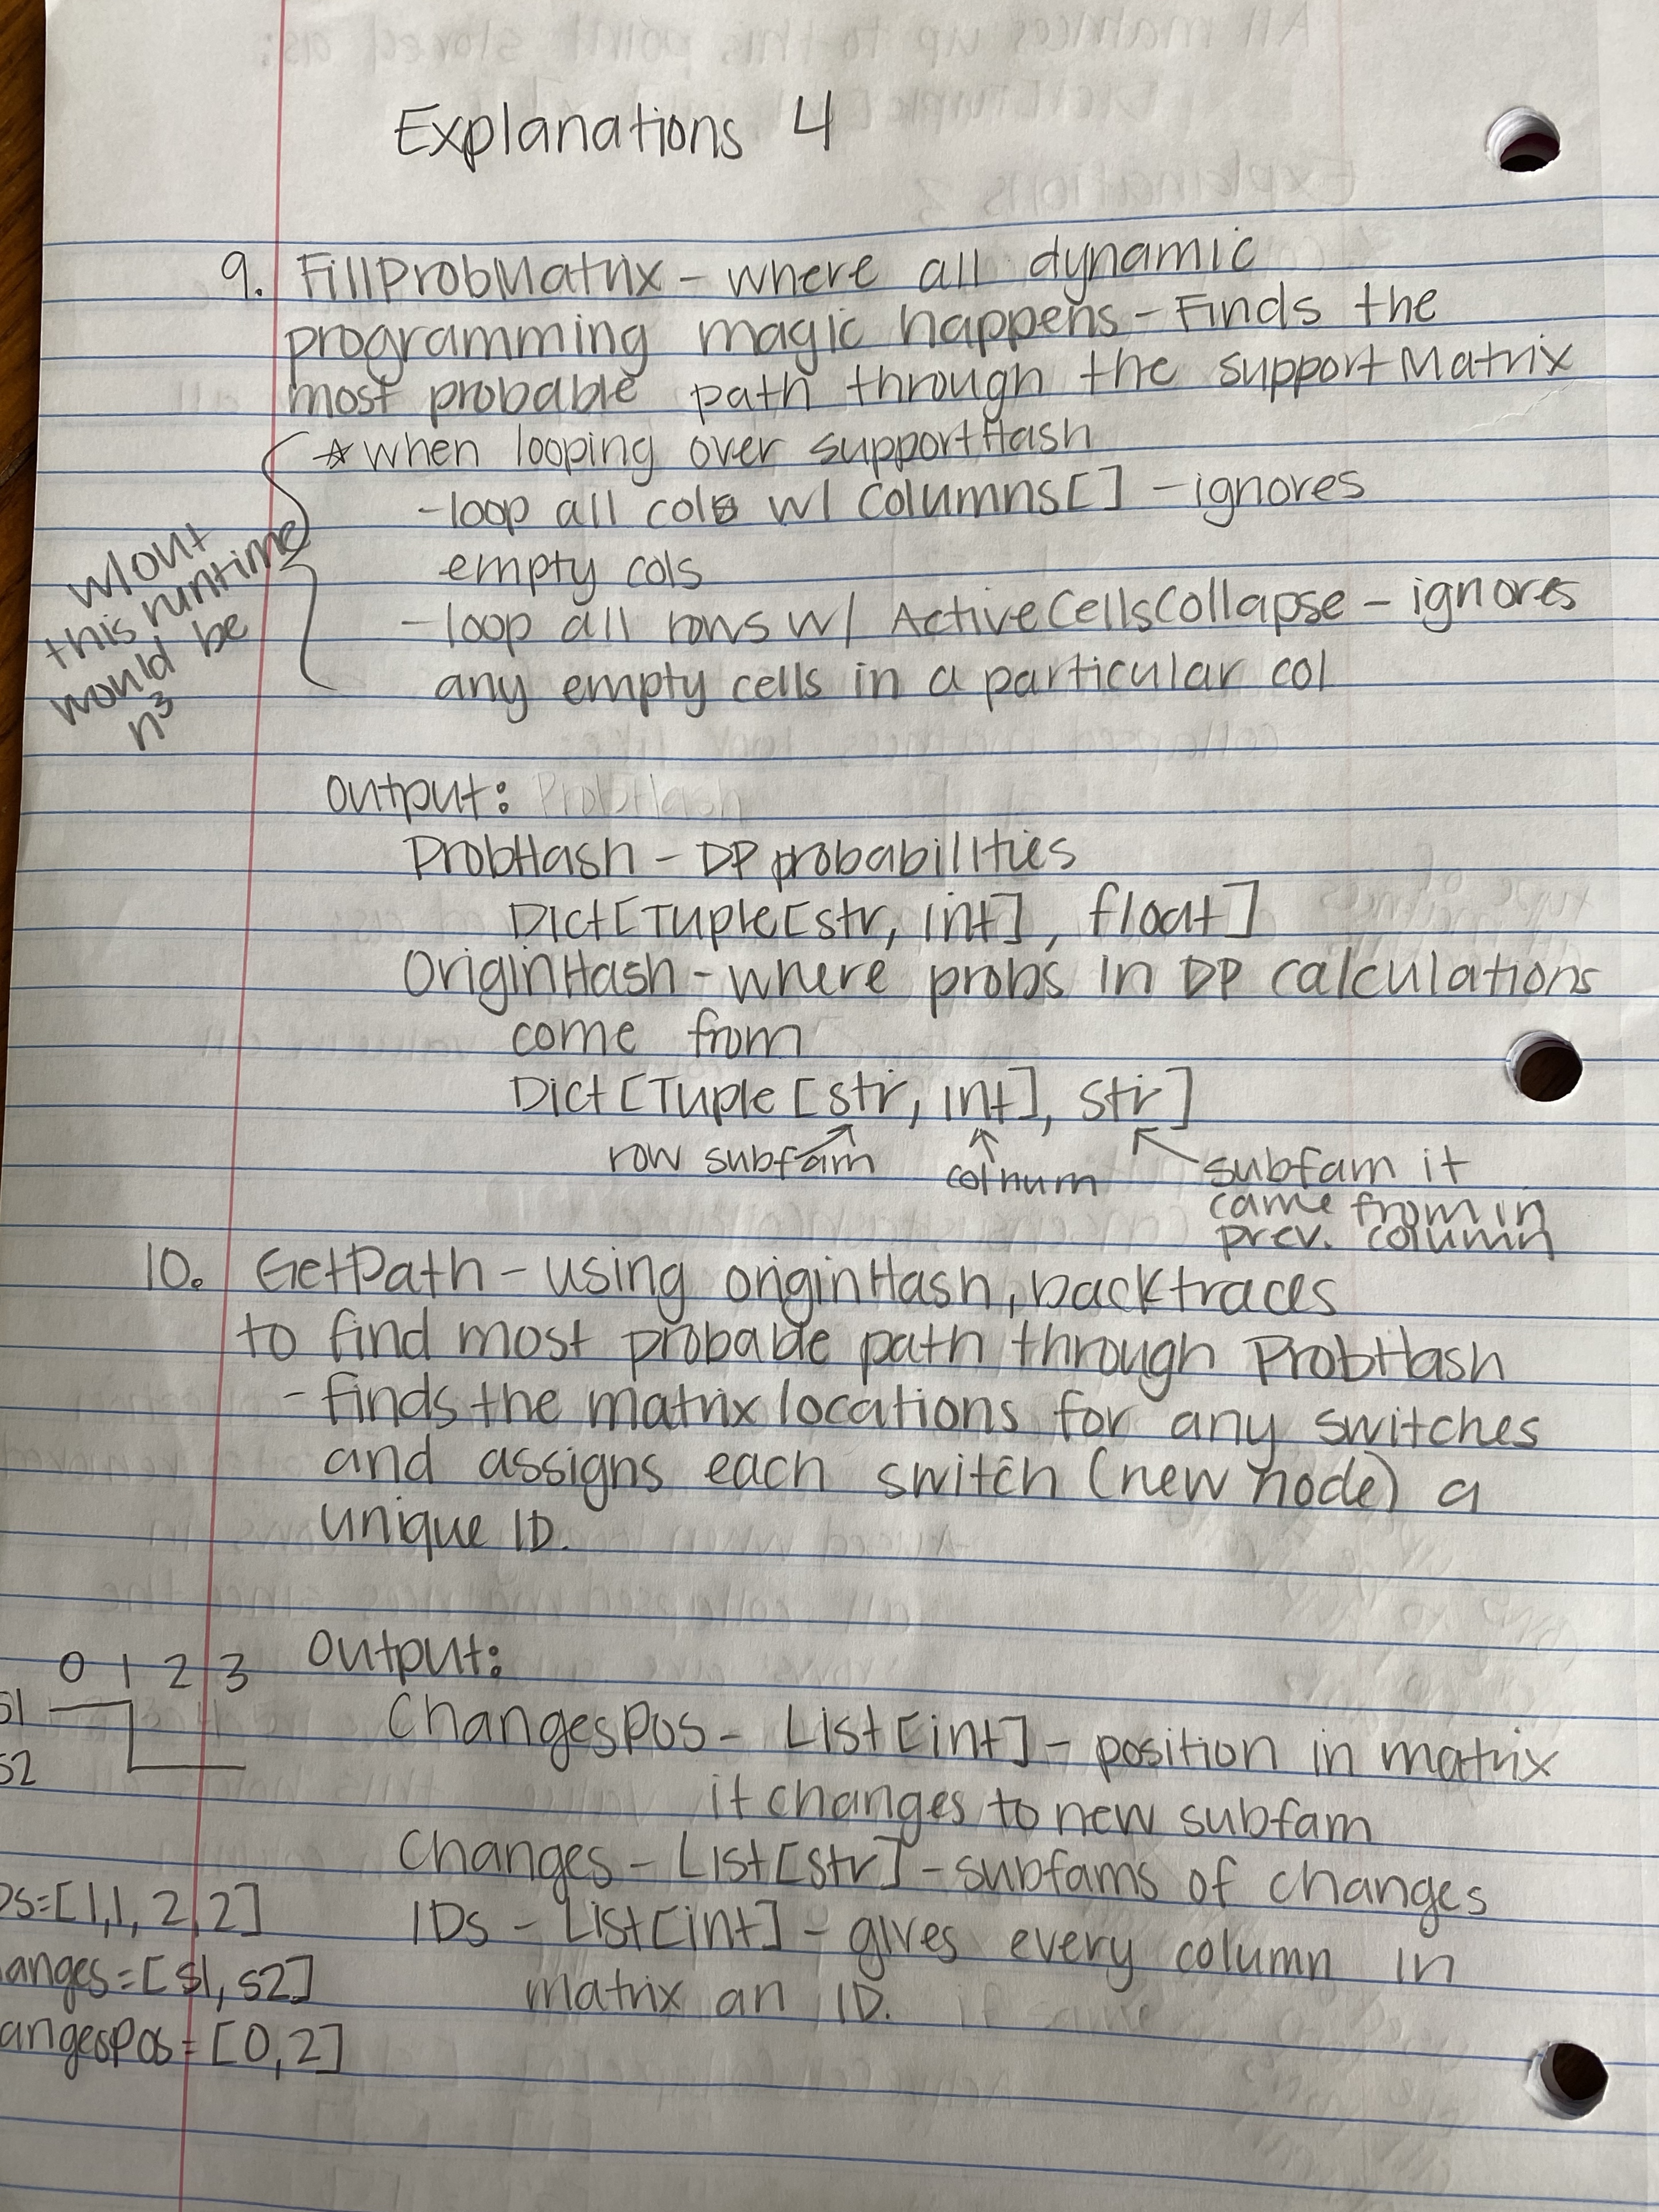 Explanations 4
9. FillProbMatrix - where all dynamic
programming magic happens - Finds the
most probable path through the supportMatrix
☆ when looping over supportHash
- loop all cols w/ Columns[] - ignores
empty cols
- loop all rows w/ ActiveCellsCollapse - ignores
any empty cells in a particular col
w/out
this runtime
would be
n³
output: ProbHash
ProbHash - DP probabilities
Dict[Tuple[str, int], float]
OriginHash - where probs in DP calculations
come from
Dict[Tuple[str, int], str]
row subfam
colnum
subfam it
came from in
prev. column
10. GetPath - using originHash, backtraces
to find most probable path through ProbHash
- finds the matrix locations for any switches
and assigns each switch (new node) a
unique ID.
0 1 2 3
S1
S2
output:
ChangesPos - List[int] - position in matrix
it changes to new subfam
Changes - List[str] - subfams of changes
IDs - List[int] - gives every column in
matrix an ID.
Ds=[1,1,2,2]
anges=[S1, S2]
angesPos=[0,2]